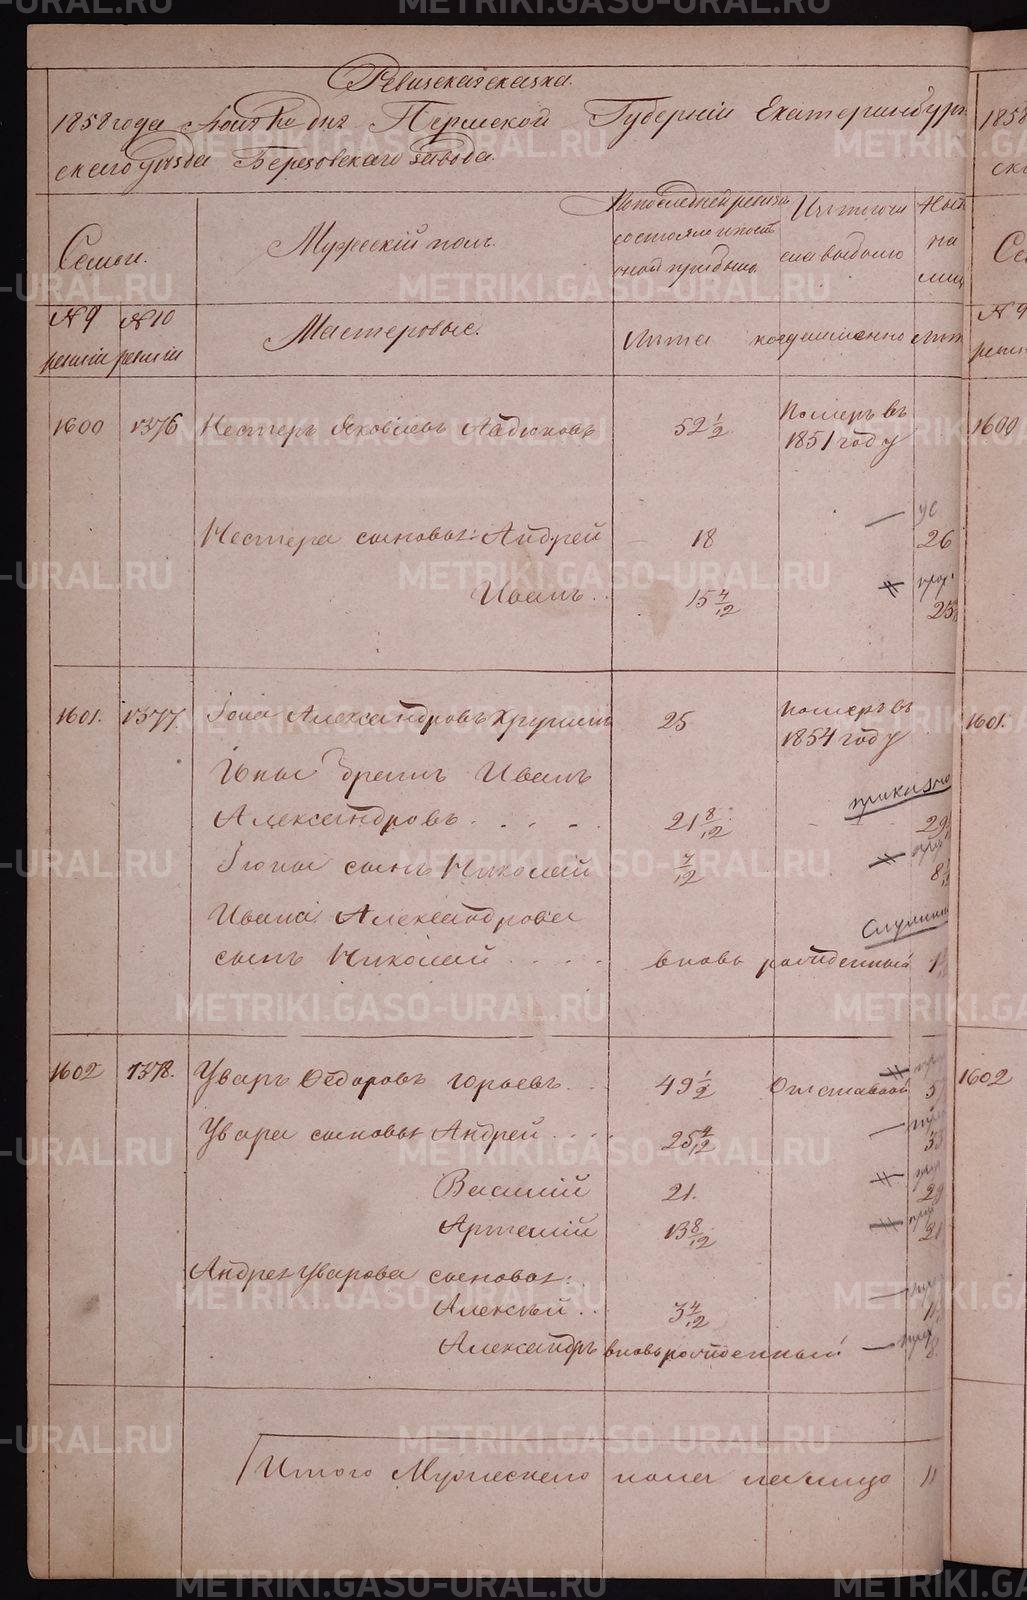 Ревизская сказка.
1858 года дня Пермской Губерніи Екатеринбург
скаго уѣзда Березовскаго завода.
Семьи.
Мужескій полъ.
По последней ревизіи
состояло и после
оной прибыло
Изъ того чи
сла выбыло
Нынѣ
на
лиц
№ 9
ревизіи
№ 10
ревизіи
Мастеровые.
Лѣта
когда именно
Лѣт
1600 1376 Нестеръ Яковлевъ 52 1/2 Померъ въ
1851 году
Нестера сыновья: Андрей 18 26
Иванъ. 15 4/12 25
1601. 1377. Іона Александровъ 25 Померъ въ
1854 году
Іоны братъ Иванъ
Александровъ 21 8/12 29
Іоны сынъ Николай 7/12 8
Ивана Александрова
сынъ Николай вновь рожденный 1
1602 1378. Уваръ Ѳедоровъ 49 1/2 Отставной 57
Увара сыновья Андрей 25 4/12 33
Василій 21. 29
Артемій 13 8/12 21
Андрея Уварова сыновья:
Алексѣй 3 4/12 11
Александръ вновь рожденный 8
Итого Мужескаго пола на лицо 11
1858
ска
Се
№ 9
ревиз
1600
1601.
1602
METRIKI.GASO-URAL.RU